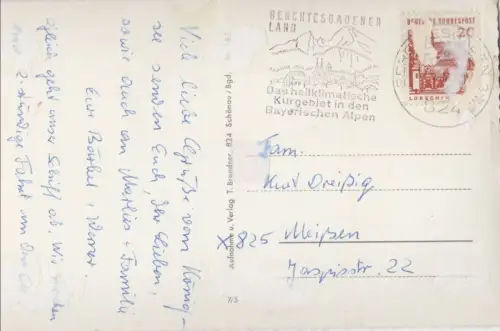 Viele liebe Grüße vom König-
see senden Euch, Ihr Lieben,
sowie auch an Marlies + Familie
Eure Bärbel + Werner.
geht unser Schiff ab. Wir machen
2-stündige Fahrt
Aufnahme u. Verlag T. Brandner, 824 Schönau / Bgd.
BERCHTESGADENER
LAND
Das heilklimatische
Kurgebiet in den
Bayerischen Alpen
824
DEUTSCHE BUNDESPOST
20
LORSCH
Fam.
Kurt Dreißig
X 825 Meißen
Jaspisstr. 22